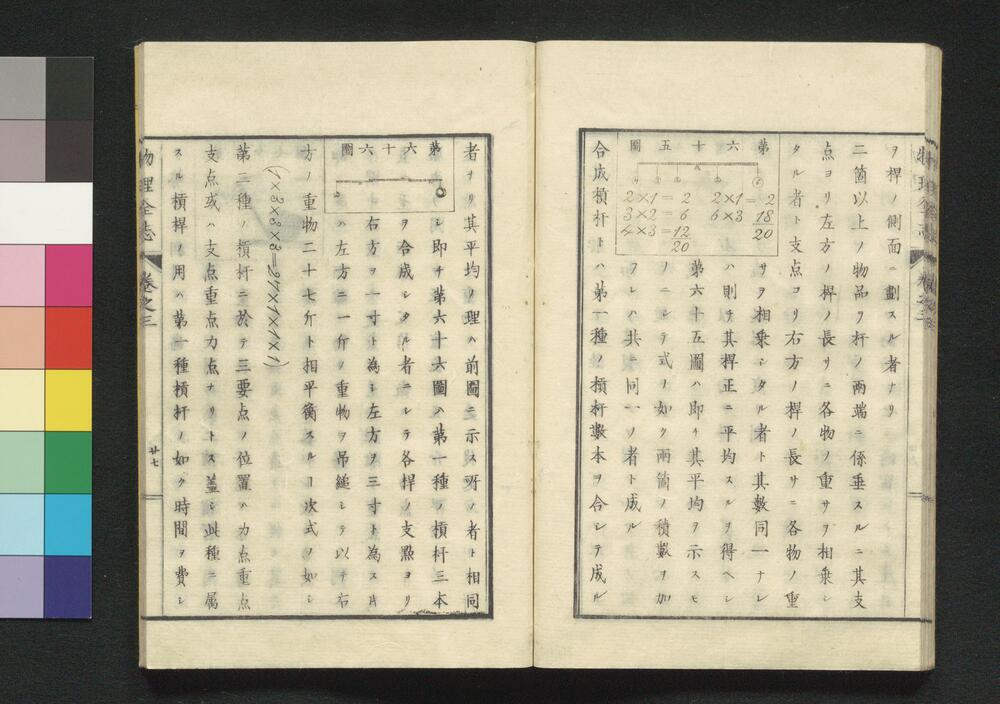 ヲ桿ノ側面ニ劃スル者ナリ
二箇以上ノ物品ヲ杆ノ兩端ニ係垂スルニ其支
点ヨリ左方ノ桿ノ長サニ各物ノ重サヲ相乗シ
タル者ト支点ヨリ右方ノ桿ノ長サニ各物ノ重
サヲ相乗シタル者ト其數同一ナレ
ハ則チ其桿正ニ平均スルヲ得ヘシ
第六十五圖ハ即チ其平均ヲ示スモ
ノニシテ式ノ如ク兩箇ノ積數ヲ加
フレハ共ニ同一ノ者ト成ル
合成槓杆トハ第一種ノ槓杆數本ヲ合シテ成ル
第六十五圖
2×1= 2
3×2= 6
4×3=12
20
2×1= 2
6×3 18
20
者ナリ其平均ノ理ハ前圖ニ示ス所ノ者ト相同
シ即チ第六十六圖ハ第一種ノ槓杆三本
ヲ合成シタル者ニシテ各桿ノ支點ヨリ
右方ヲ一寸ト為シ左方ヲ三寸ト為ス片
ハ左方ニ一斤ノ重物ヲ吊縋シテ以テ右
方ノ重物二十七斤ト相平衡スルヿ次式ノ如シ
(1×3×3×3=27×1×1×1)
第三種ノ槓杆ニ於テ三要点ノ位置ハ力点重点
支点或ハ支点重点力点ナリトス蓋シ此種ニ属
スル槓桿ノ用ハ第一種槓杆ノ如ク時間ヲ費シ
第六十六圖
物理全志
卷之三
廿七